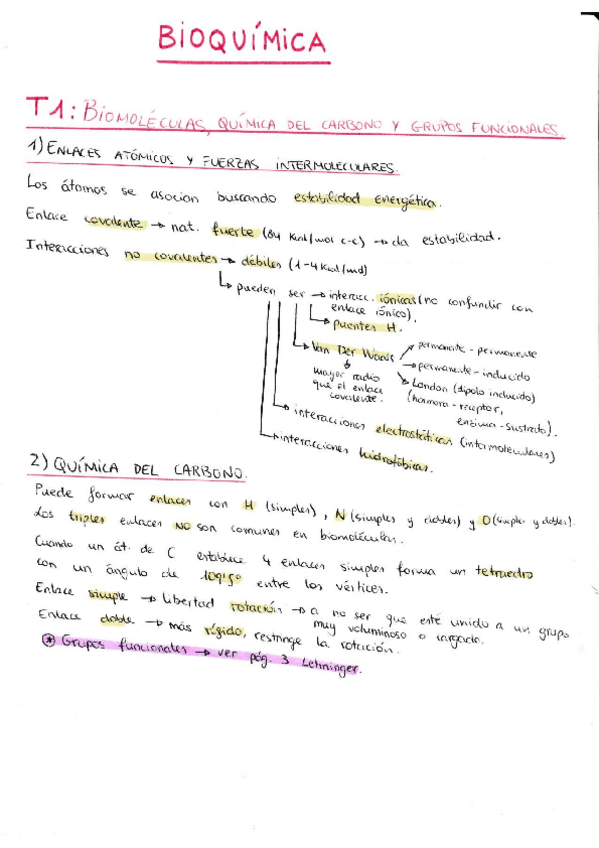 BIOQUÍMICA
T1: BIOMOLÉCULAS, QUÍMICA DEL CARBONO Y GRUPOS FUNCIONALES.
1) ENLACES ATÓMICOS Y FUERZAS INTERMOLECULARES.
Los átomos se asocian buscando estabilidad energética.
Enlace covalente → nat. fuerte (84 Kcal/mol c-c) → da estabilidad.
Interacciones no covalentes → débiles (1-4 Kcal/mol)
↳ pueden ser → interacc. iónicas (no confundir con
enlace iónico).
↳ puentes H.
↳ Van Der Waals
permanente - permanente
→ permanente - inducido
London (dipolo inducido)
(hormona - receptor,
enzima - sustrato).
mayor radio
que el enlace
covalente.
interacciones electrostáticas (intermoleculares)
interacciones hidrofóbicas.
2) QUÍMICA DEL CARBONO.
Puede formar enlaces con H (simples), N (simples y dobles) y O (simples y dobles).
Los triples enlaces NO son comunes en biomoléculas.
Cuando un át. de C establece 4 enlaces simples forma un tetraedro
con un ángulo de 109'5º entre los vértices.
Enlace simple → libertad rotación → a no ser que esté unido a un grupo
muy voluminoso o cargado.
Enlace doble → más rígido, restringe la rotación.
* Grupos funcionales → ver pág. 3 Lehninger.